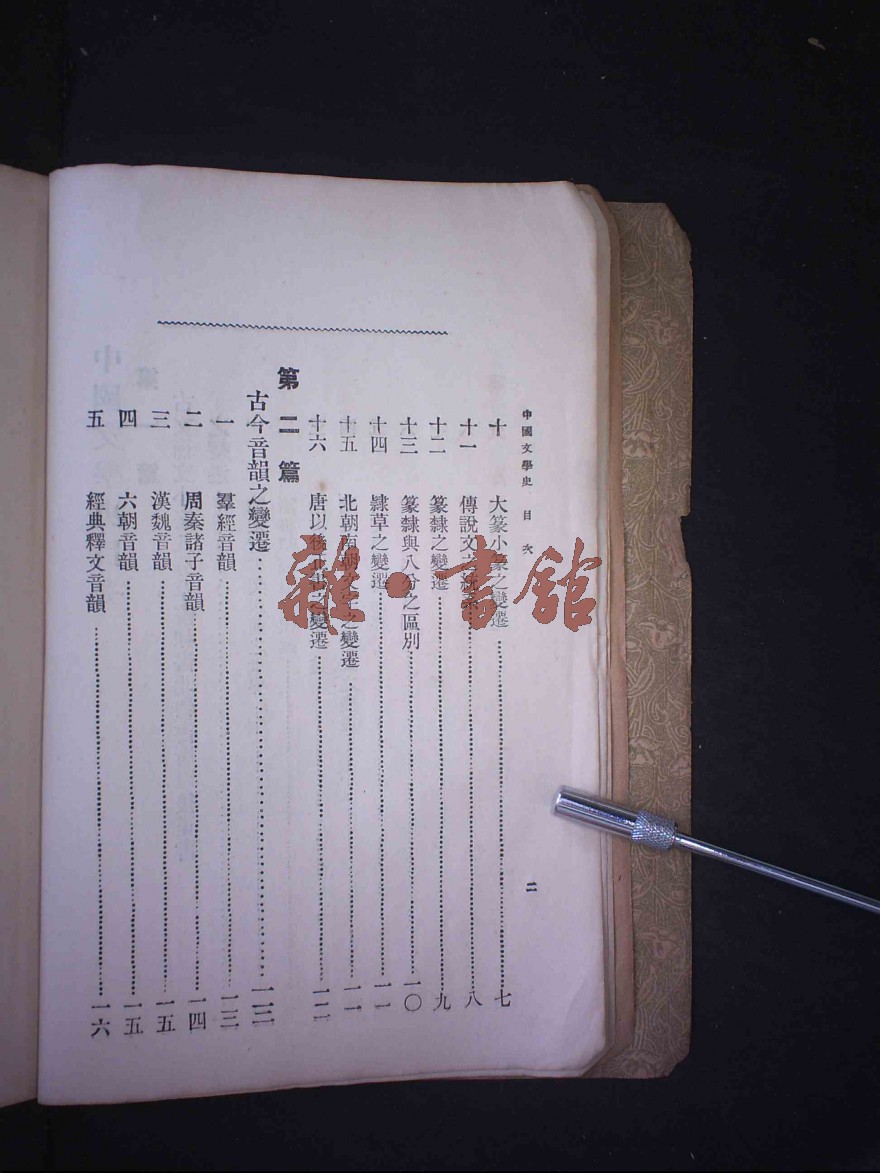 中國文學史 目次
二
十 大篆小篆之變遷……七
十一 傳說文字統系……八
十二 篆隸之變遷……九
十三 篆隸與八分之區別……一〇
十四 隸草之變遷……一一
十五 北朝南朝文字之變遷……一一
十六 唐以後正書之變遷……一二
第二篇
古今音韻之變遷……一三
一 羣經音韻……一三
二 周秦諸子音韻……一四
三 漢魏音韻……一五
四 六朝音韻……一五
五 經典釋文音韻……一六
雜·書館